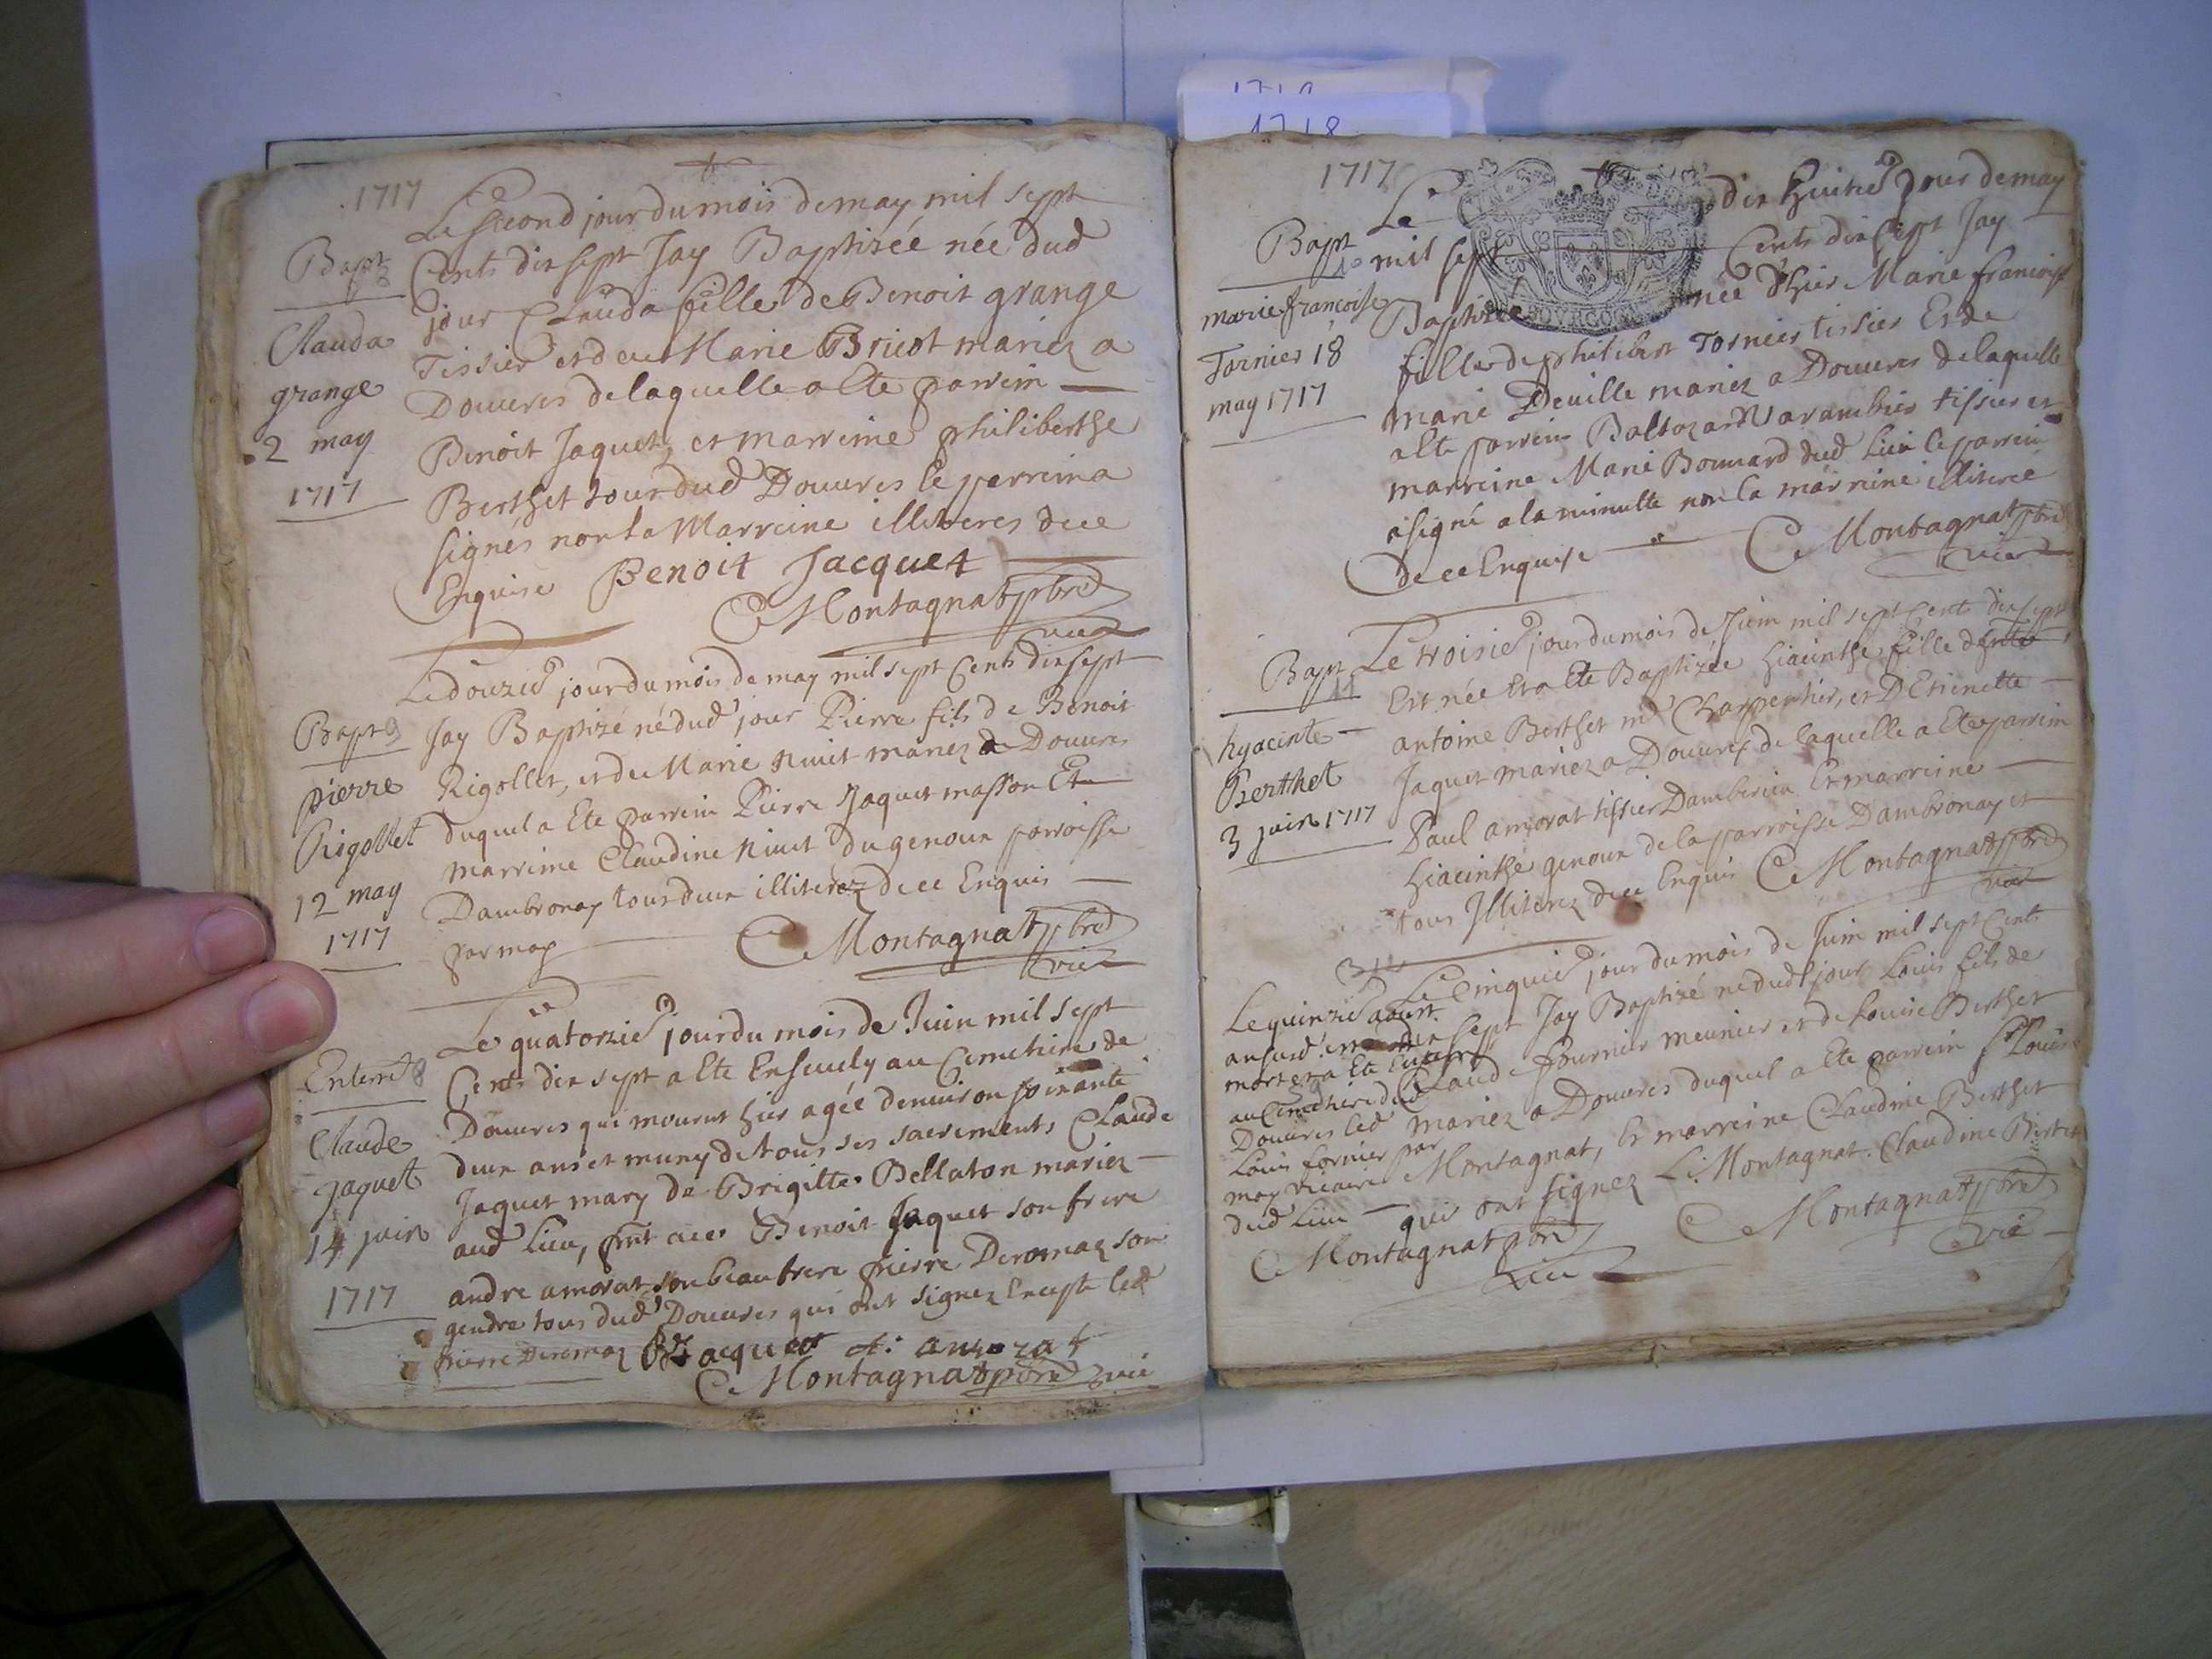 1717
Le second jour du mois de may mil sept
Bapt 8
Cents dix sept Jay Baptizée née dud
jour Clauda fille de Benoit grange
Clauda
grange
2 may
1717
Tissier et de Marie Bricot mariez a
Douures de laquelle a Ete parrein
Benoit Jaquet, et marreine philiberthe
Berthet tous dud Douures le parrein a
signés non la Marreine illiteres de ce
Enquise Benoit Jacquet
C Montagnat pbre
vic
Le douzie jour du mois de may mil sept Cents dix sept
Bapt 9
pierre
Rigollet
12 may
1717
Jay Baptizé né dud jour Pierre fils de Benoit
Rigollet, et de Marie nivet mariez a Douures
duquel a Ete parrein Pierre Jaquet masson Et
marreine Claudine nivet du genoux parroisse
Dambronay tous deux illiterez de ce Enquis
par moy C Montagnat pbre
vic
Le quatorzie jour du mois de Juin mil sept
Enterrt 8
Claude
jaquet
14 juin
1717
Cents dix sept a Ete Enseuely au Cemetiere de
Douures qui mourut hier agée denuiron soixante
deux ans et muny de tous ses sacrements Claude
Jaquet mary de Brigitte Bellaton mariez
aud Lieu, Benoit Jaquet son frere
andre amorat son beau frere pierre Deromaz son
gendre tous dud Douures qui ont signez Excepte led
pierre Deromaz B Jacquet A: amorat
C Montagnat pbre vic
1718
1717
Le dix huitie Jour de may
Bapt
10
marie francoise
Tornier 18
may 1717
mil sept Cents dix sept Jay
Baptizée née d'hier Marie francoise
BOVRGOG
fille de philibert Tornier tissier Et de
marie Deuille mariez a Douures de laquelle
a Ete parrein Baltazard Varambier tissier et
marreine Marie Bonnard dud Lieu le parrein
a signé a la minutte non la marreine illiteree
de ce Enquise C Montagnat pbre
vic
Le troisie jour du mois de Juin mil sept Cents dix sept
Bapt
11
hyacinte
Berthet
3 juin 1717
Est née Et a Ete Baptizée hiacinthe fille
antoine Berthet md Charpentier, et D Etienette
Jaquet mariez a Douures de laquelle a Ete parrein
Paul amorat tissier Damberieu Et marreine
hiacinthe genoux de la parroisse Dambronay et
tous Illiterez de ce Enquis C Montagnat pbre
vic
Le Cinquie jour du mois de Juin mil sept Cents
dix sept Jay Baptizé né dud jour Louis fils de
Claude fournier meunier et de Louise Berthet
mariez a Douures duquel a Ete parrein Sr Louis
Montagnat, Et marreine Claudine Berthet
qui ont signez L: Montagnat. Claudine Bertet
C Montagnat pbre
vic
Le quinzie aoust
an susd
mort et a Ete Enterré
au Cimetiere dud
Douures led
Louis fornier par
moy vicaire
dud Lieu
C Montagnat pbre
vic